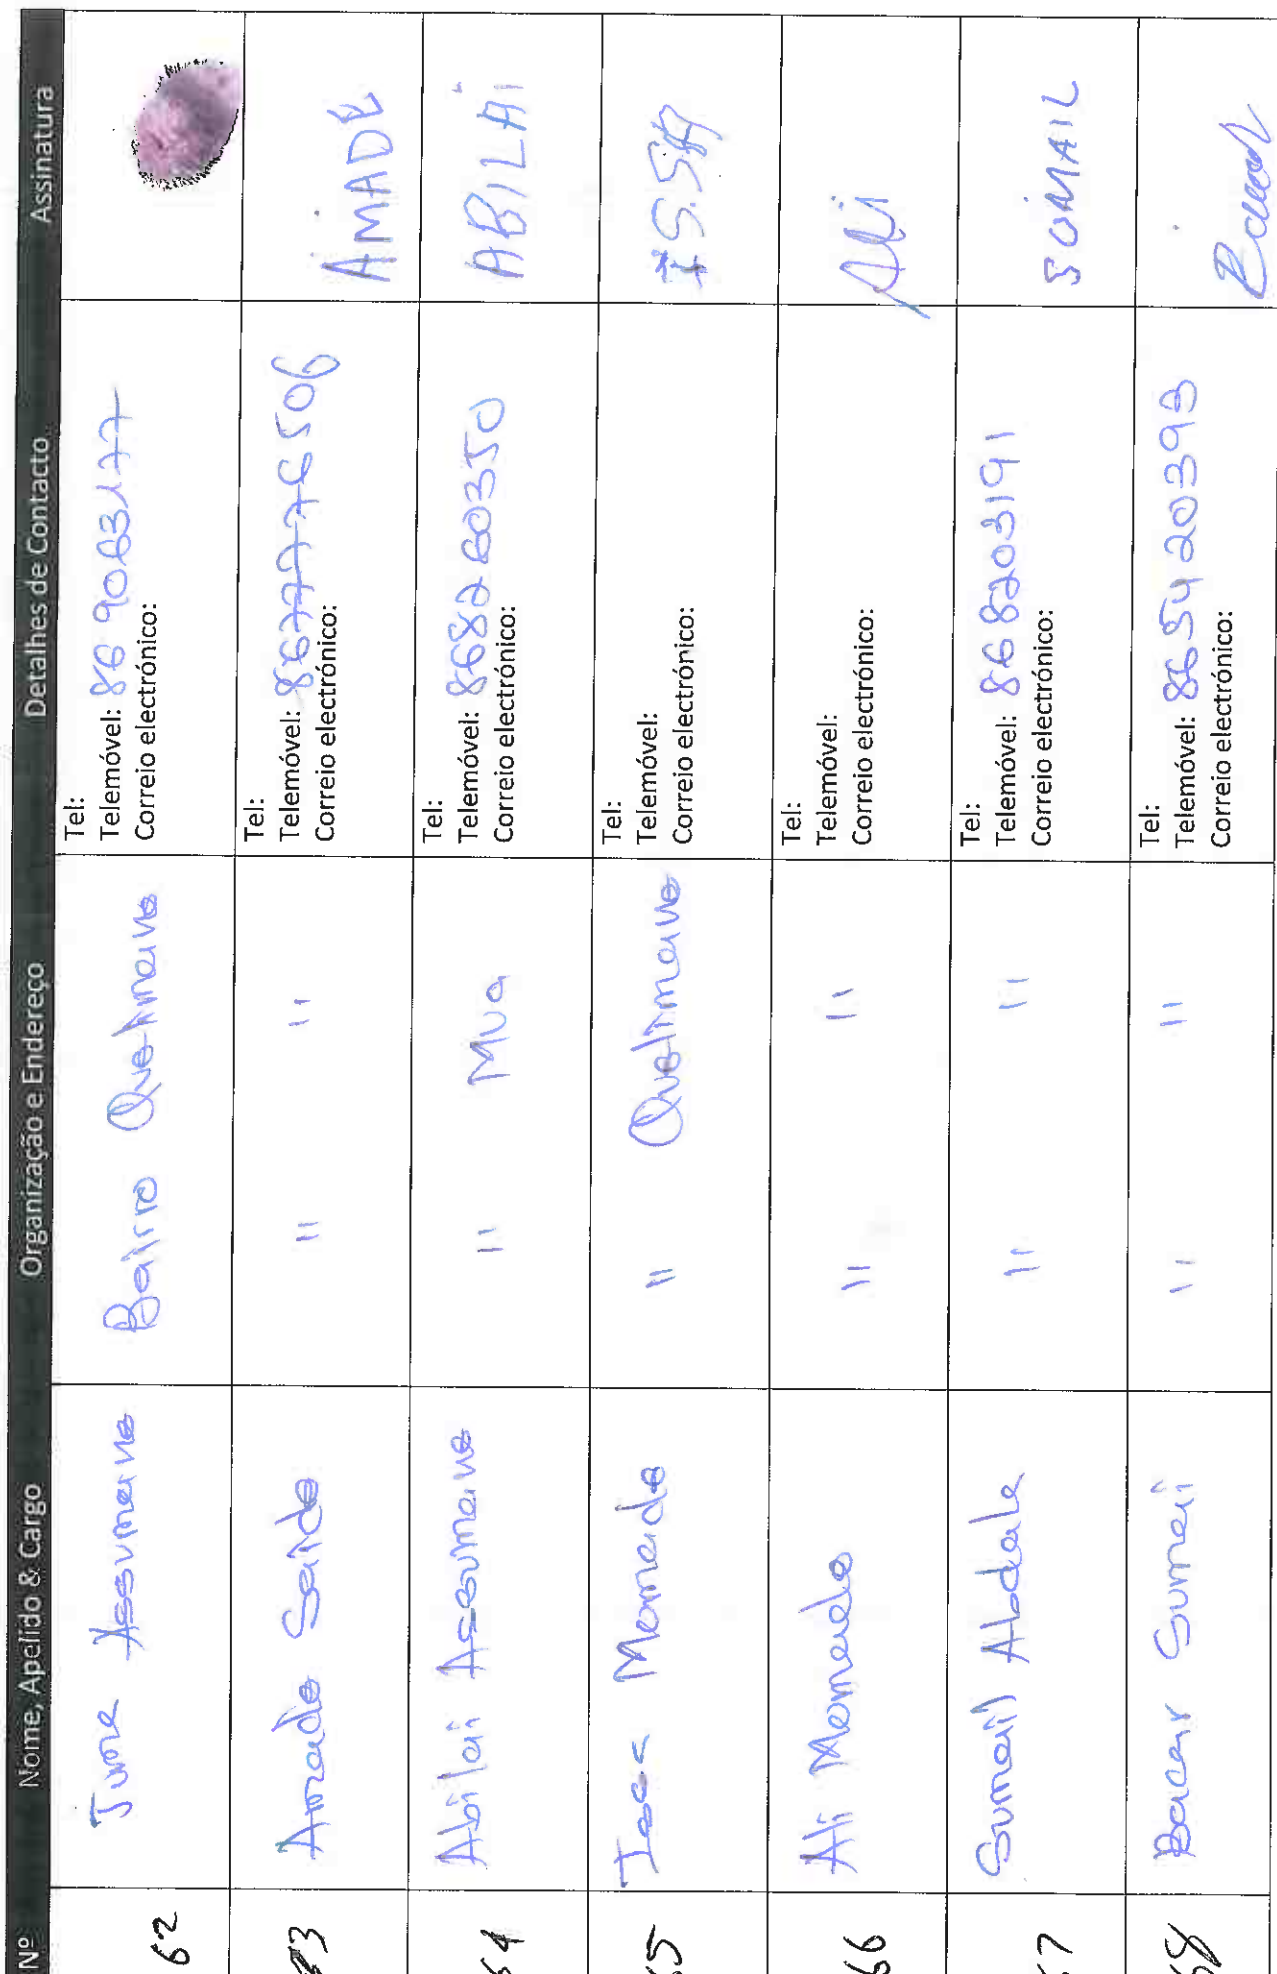 Nº Nome, Apelido & Cargo Organização e Endereço Detalhes de Contacto Assinatura
62 Juma Assumane Bairro Quelimane Tel:
Telemóvel: 86 9063177
Correio electrónico:
63 Amade Saide " " Tel:
Telemóvel: 8677776506 AMADE
Correio electrónico:
64 Abilai Assumane " Mua Tel:
Telemóvel: 868260350 ABILAi
Correio electrónico:
65 Issa Mamade " Quelimane Tel:
Telemóvel: iSSA
Correio electrónico:
66 Ali Mamade " " Tel:
Telemóvel: Ali
Correio electrónico:
67 Sumail Abdala " " Tel:
Telemóvel: 868203191 SUMAIL
Correio electrónico:
68 Bacar Sumai " " Tel:
Telemóvel: 865420393
Correio electrónico: